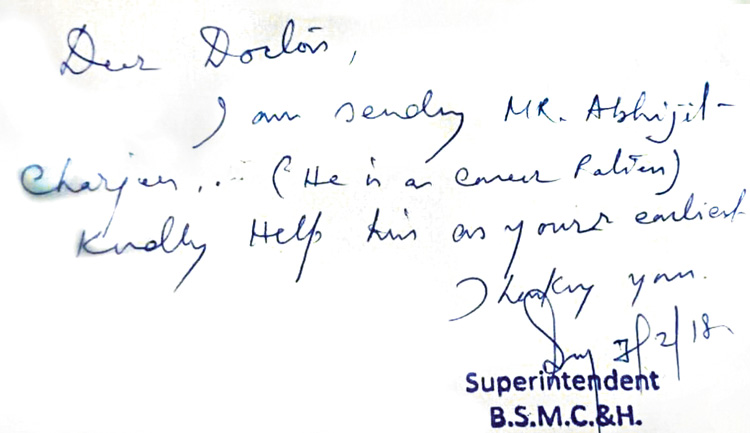 Dear Doctors,
I am sending MR. Abhijit
(He is a cancer Patien)
Kindly Help him as yours earliest
Thanking you.
7/2/18
Superintendent
B.S.M.C.&H.